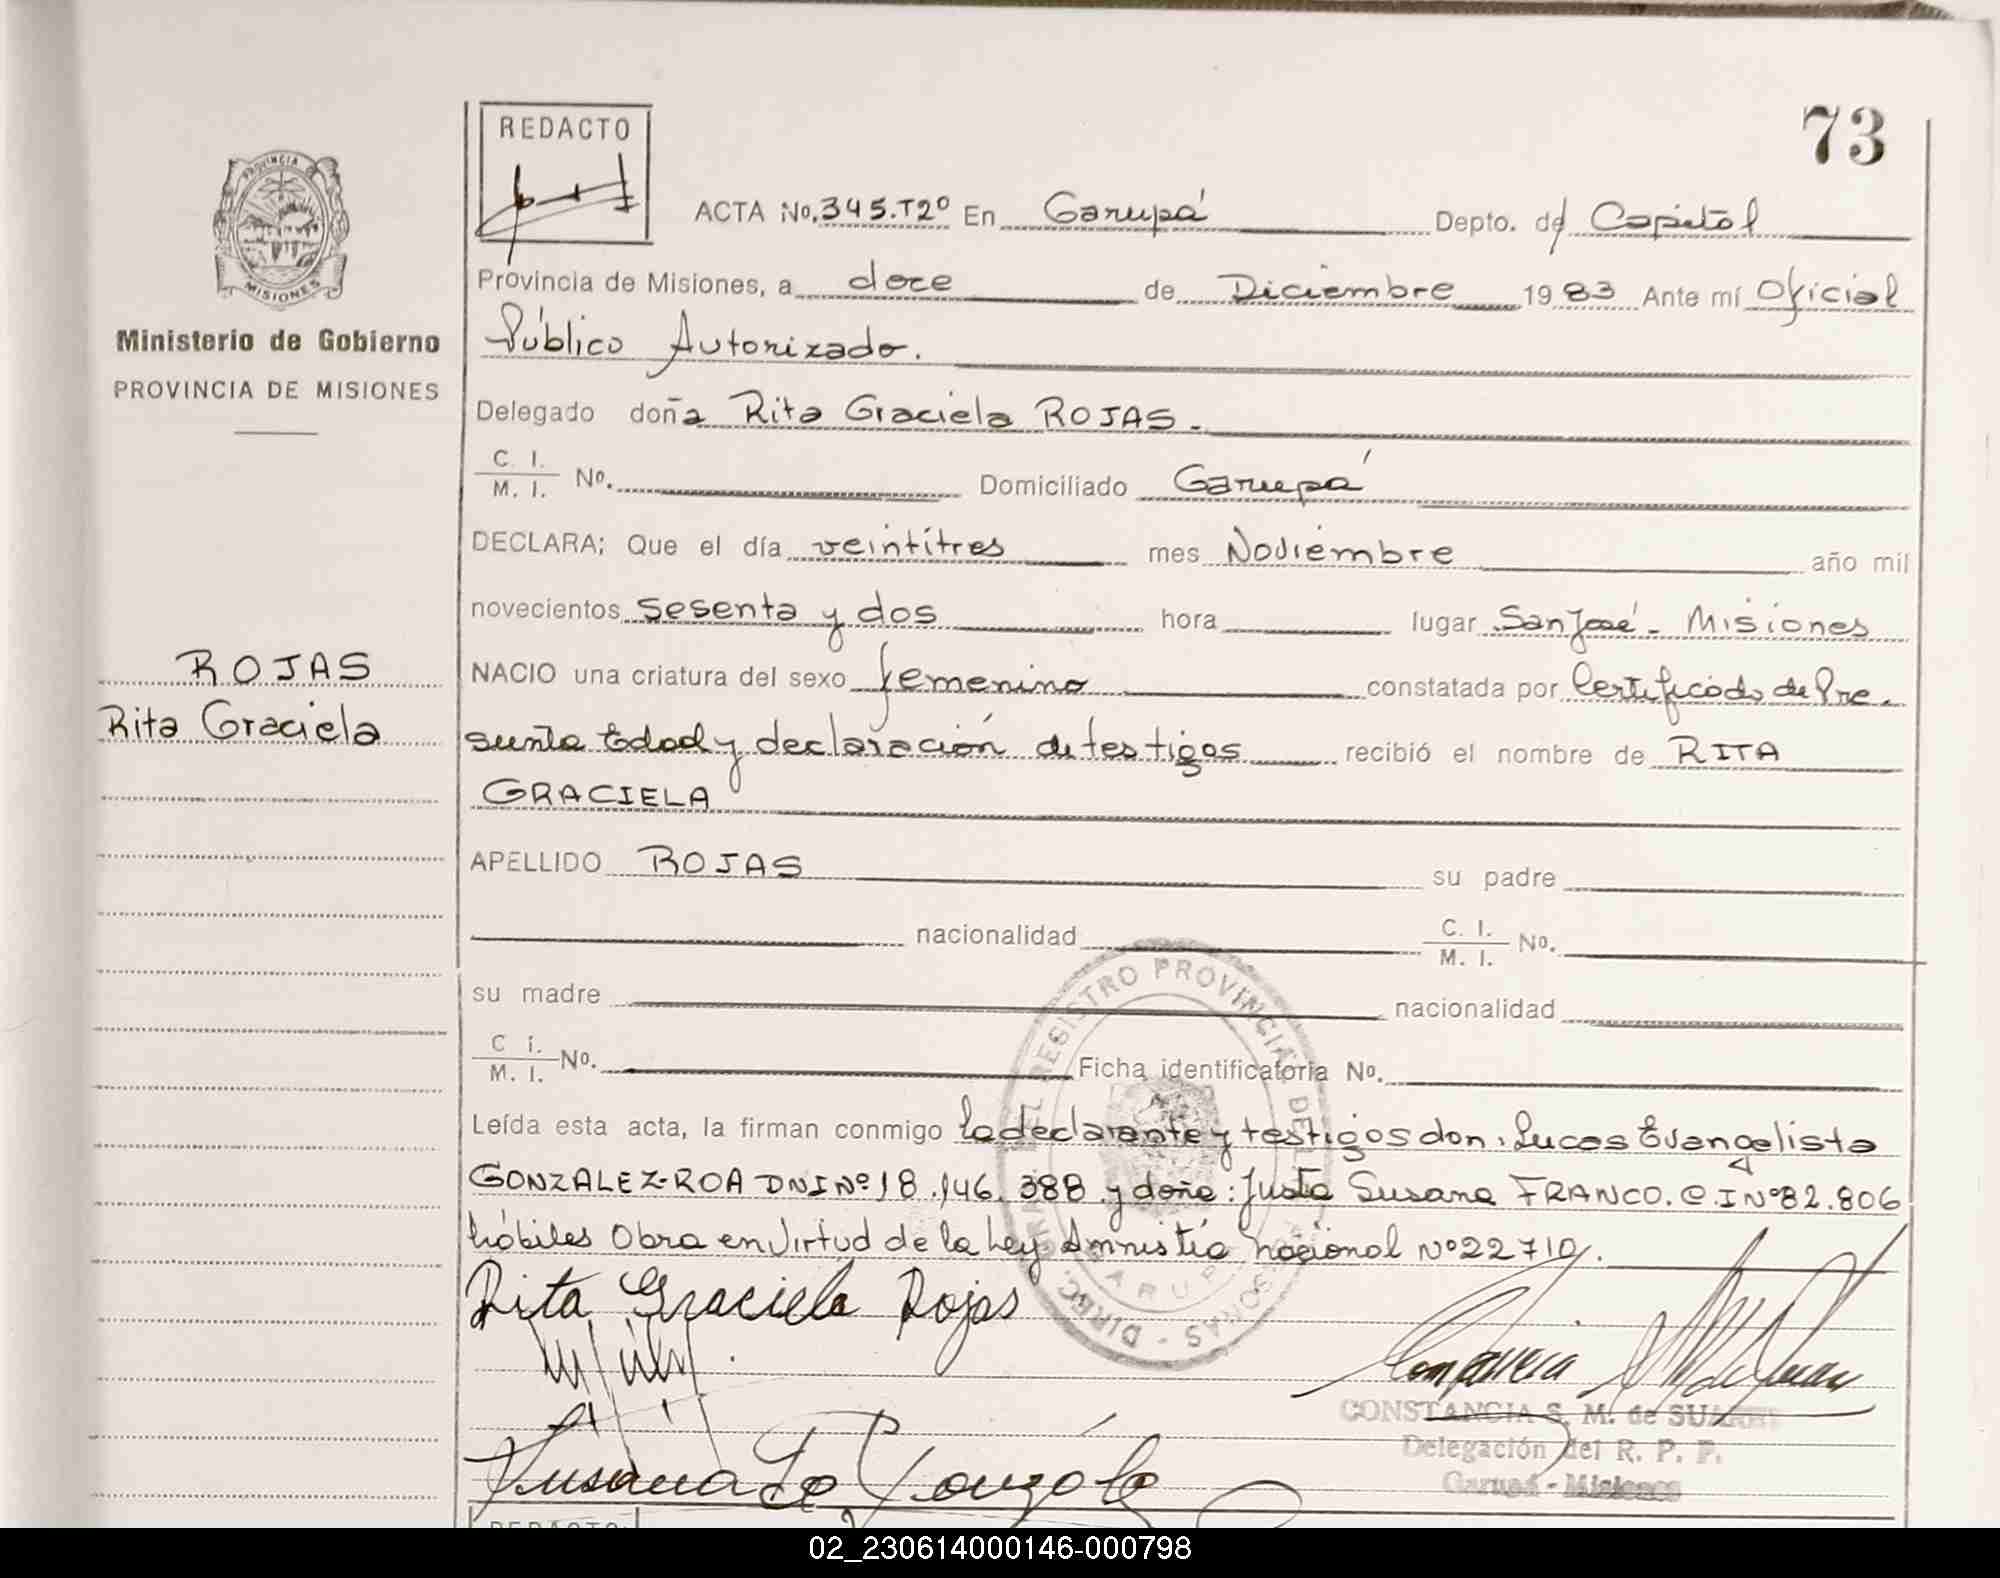 73
REDACTO
PROVINCIA
MISIONES
Ministerio de Gobierno
PROVINCIA DE MISIONES
ACTA No. 345.T2º En Garupá Depto. de Capital
Provincia de Misiones, a doce de Diciembre 1983 Ante mí Oficial
Público Autorizado.
Delegado doña Rita Graciela ROJAS.
C. I.
M. I. No. Domiciliado Garupá
DECLARA; Que el día veintitres mes Noviembre año mil
novecientos sesenta y dos hora lugar San José - Misiones
ROJAS
Rita Graciela
NACIO una criatura del sexo femenino constatada por Certificado de Pre-
sunta Edad y declaración de testigos recibió el nombre de RITA
GRACIELA
APELLIDO ROJAS su padre
nacionalidad C. I.
M. I. No.
su madre nacionalidad
C i.
M. I. No. Ficha identificatoria No.
Leída esta acta, la firman conmigo la declarante y testigos don: Lucas Evangelista
GONZALEZ-ROA DNI Nº 18.146.388 y doña: Justa Susana FRANCO. C.I Nº 82.806
hábiles Obra en virtud de la Ley Amnistía nacional Nº 22710.
Rita Graciela Rojas
CONSTANCIA S. M. de SUAREZ
Delegación del R. P. P.
Garupá - Misiones
DIREC. GRAL. DEL REGISTRO PROVINCIAL DE LAS PERSONAS
GARUPA
REDACTO
02_230614000146-000798